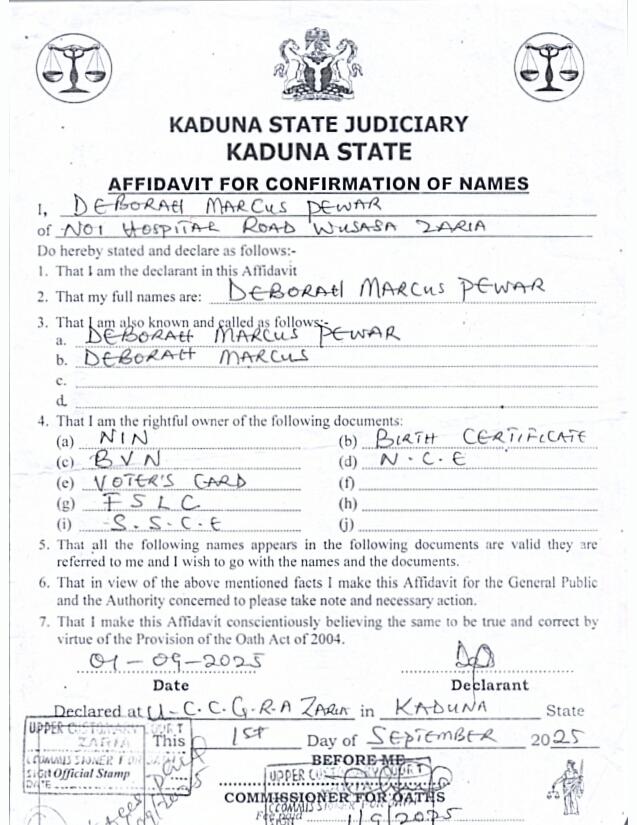 KADUNA STATE JUDICIARY
KADUNA STATE
AFFIDAVIT FOR CONFIRMATION OF NAMES
I, DEBORAH MARCUS PEWAR
of NO1 HOSPITAL ROAD WUSASA ZARIA
Do hereby stated and declare as follows:-
1. That I am the declarant in this Affidavit
2. That my full names are: DEBORAH MARCUS PEWAR
3. That I am also known and called as follows:-
a. DEBORAH MARCUS PEWAR
b. DEBORAH MARCUS
c.
d.
4. That I am the rightful owner of the following documents:
(a) NIN (b) BIRTH CERTIFICATE
(c) BVN (d) N.C.E
(e) VOTER'S CARD (f)
(g) FSLC (h)
(i) S.S.C.E (j)
5. That all the following names appears in the following documents are valid they are
referred to me and I wish to go with the names and the documents.
6. That in view of the above mentioned facts I make this Affidavit for the General Public
and the Authority concerned to please take note and necessary action.
7. That I make this Affidavit conscientiously believing the same to be true and correct by
virtue of the Provision of the Oath Act of 2004.
01-09-2025
Date Declarant
Declared at U.C.C.G.R.A ZARIA in KADUNA State
UPPER CUSTOMARY COURT
ZARIA
This 1st Day of SEPTEMBER 2025
COMMISSIONER FOR
SIGN Official Stamp
DATE
BEFORE ME
UPPER CUSTOMARY COURT
COMMISSIONER FOR OATHS
Fee paid 1/9/2025